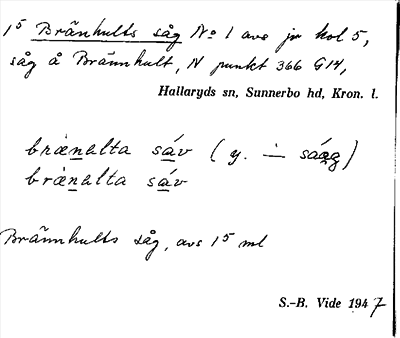 1⁵ Brånhults såg No 1 avs jr kol 5,
såg å Brännhult, N punkt 366 G14,
Hallaryds sn, Sunnerbo hd, Kron. l.
brænalta sáv (y. ∸ saág)
brænalta sáv
Brännhults såg, avs 1⁵ ml
S.-B. Vide 1947